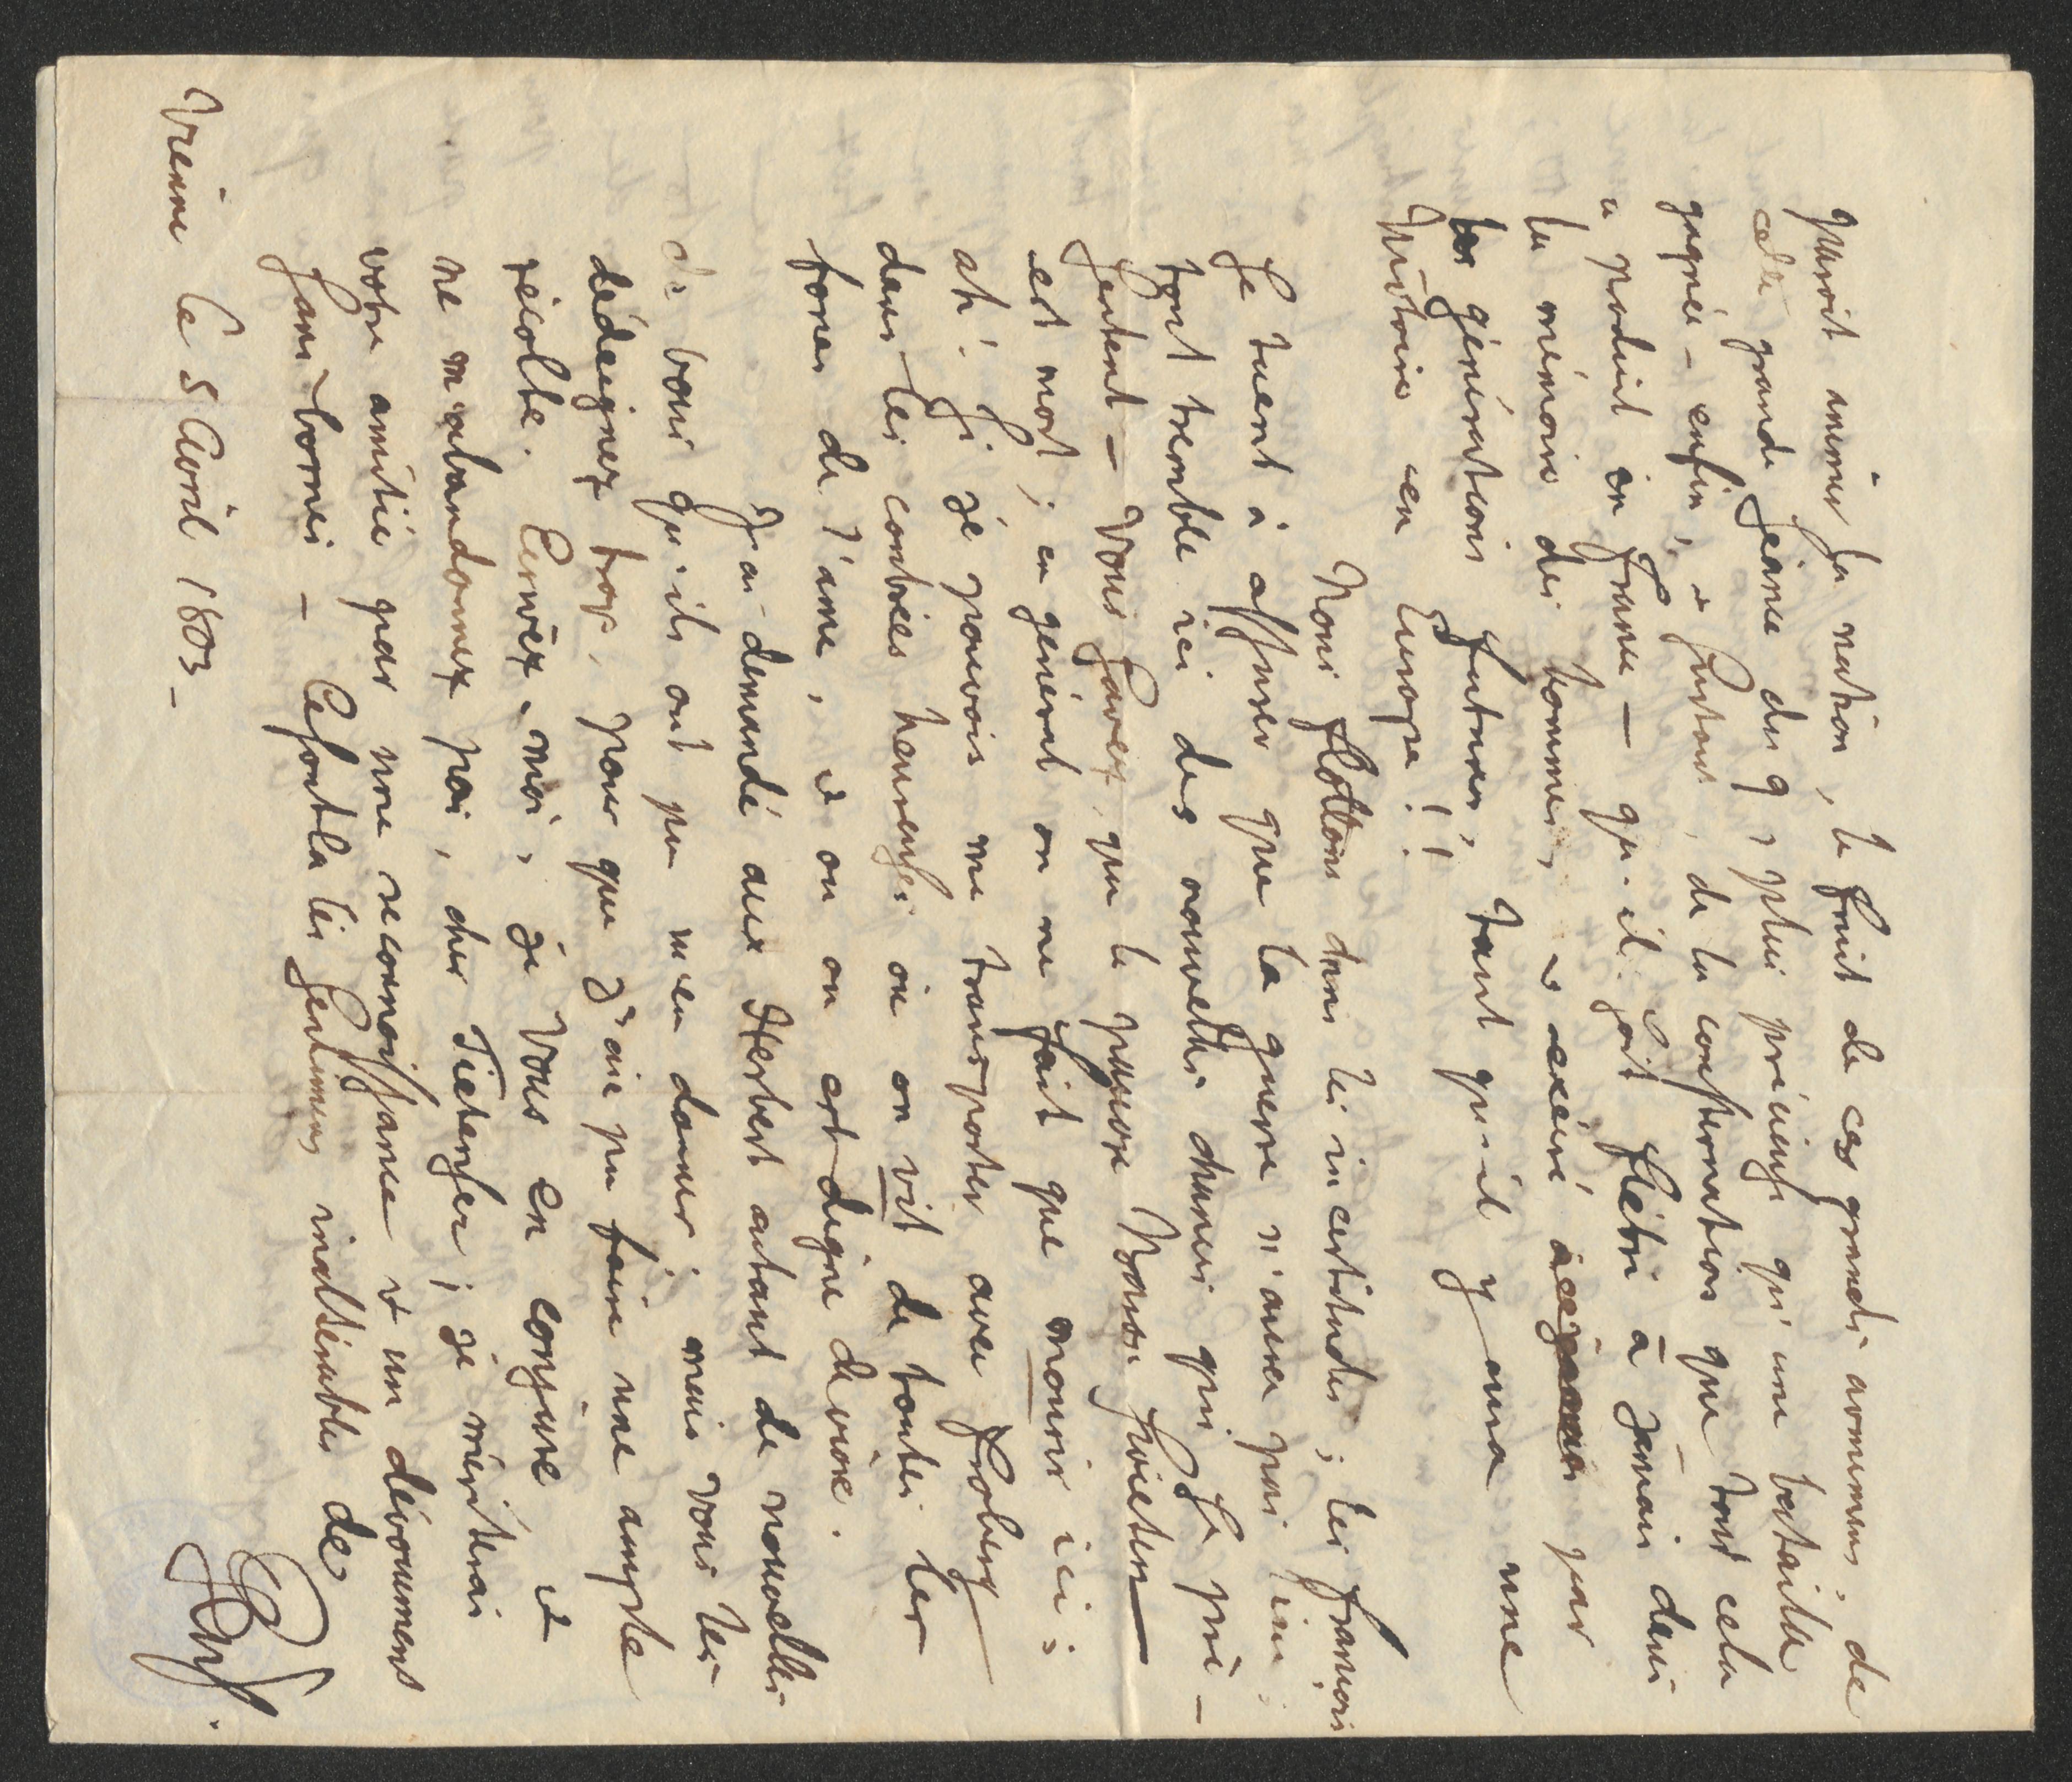 paroit animer la nation, le fruit de ces grands armemens, de
cette grande séance du 9, plus précieuse qu'une bataille
gagnée – enfin, et surtout, de la consternation que tout cela
a produit en France – qu'il soit flétri à jamais dans
la mémoire des hommes, et exécré par
les générations futures, tant qu'il y aura une
histoire en Europe!!
Nous flottons dans les incertitudes; les françois
se tuent à assurer que la guerre n'aura pas lieu;
tout tremble ici des nouvelles qui se pré-
sentent – Vous savez, que le pauvre Swieten
est mort; en général on ne fait que mourir ici;
ah! si je pouvois me transporter avec Froberg
dans les contrées heureuses où on vit de toutes les
forces de l'âme, et où on est digne de vivre.
J'ai demandé aux Herbert autant de nouvelles
de vous qu'ils ont pu m'en donner; mais vous les
dédaignez trop, pour que j'aie pu faire une ample
récolte. Ecrivez-moi, je Vous en conjure et
ne m'abandonnez pas, cher ; je mériterai
votre amitié par une reconnoissance et un dévouement
sans bornes – Ce sont là les sentimens inaltérables de
Gz.
Vienne le 5 Avril 1803 –